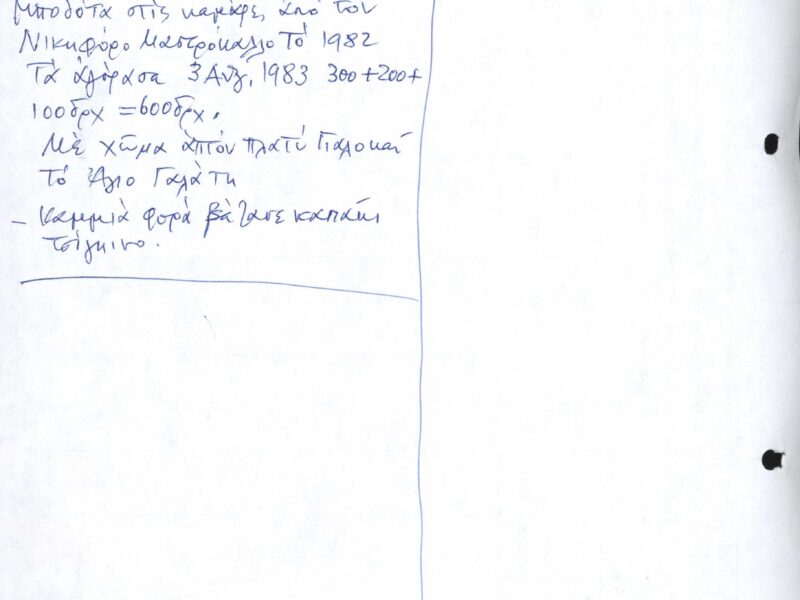 μποδότα στὶς καμάρες ἀπό τόν
Νικηφόρο Μαστρόκαλλο Τό 1982
Τά ἀγόρασα 3 Αυγ, 1983 300+200+
100δρχ = 600δρχ.
Μὲ χῶμα ἀπτόν πλατύ Γιαλό καί
τό Ἅγιο Γαλάτη
– Καμμιὰ φορὰ βάζανε καπάκι
τσίγκινο.